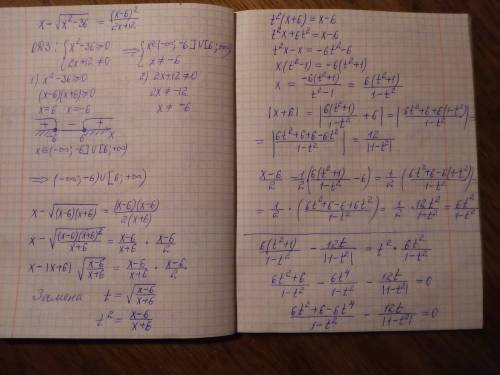 x - √(x²-36) = (x-6)²/(2x+12)
ОДЗ: { x²-36 ≥ 0 ⟹ { x∈(-∞; -6]∪[6; +∞)
2x+12 ≠ 0 x ≠ -6
1) x²-36 ≥ 0 2) 2x+12 ≠ 0
(x-6)(x+6) ≥ 0 2x ≠ -12
x=6 x=-6 x ≠ -6
+ - +
-6 6 x
x∈(-∞; -6]∪[6; +∞)
⟹ (-∞; -6)∪[6; +∞)
x - √((x-6)(x+6)) = (x-6)(x-6)/(2(x+6))
x - √((x-6)(x+6)²/(x+6)) = (x-6)/(x+6) · (x-6)/2
x - |x+6| √((x-6)/(x+6)) = (x-6)/(x+6) · (x-6)/2
Замена t = √((x-6)/(x+6))
t² = (x-6)/(x+6)
t²(x+6) = x-6
t²x+6t² = x-6
t²x-x = -6t²-6
x(t²-1) = -6(t²+1)
x = -6(t²+1)/(t²-1) = 6(t²+1)/(1-t²)
|x+6| = |6(t²+1)/(1-t²) + 6| = |(6t²+6+6(1-t²))/(1-t²)| =
= |(6t²+6+6-6t²)/(1-t²)| = 12/|1-t²|
(x-6)/2 = 1/2 (6(t²+1)/(1-t²) - 6) = 1/2 · ((6t²+6-6(1-t²))/(1-t²)) =
= 1/2 · ((6t²+6-6+6t²)/(1-t²)) = 1/2 · 12t²/(1-t²) = 6t²/(1-t²)
6(t²+1)/(1-t²) - 12t/|1-t²| = t² · 6t²/(1-t²)
(6t²+6)/(1-t²) - 6t⁴/(1-t²) - 12t/|1-t²| = 0
(6t²+6-6t⁴)/(1-t²) - 12t/|1-t²| = 0